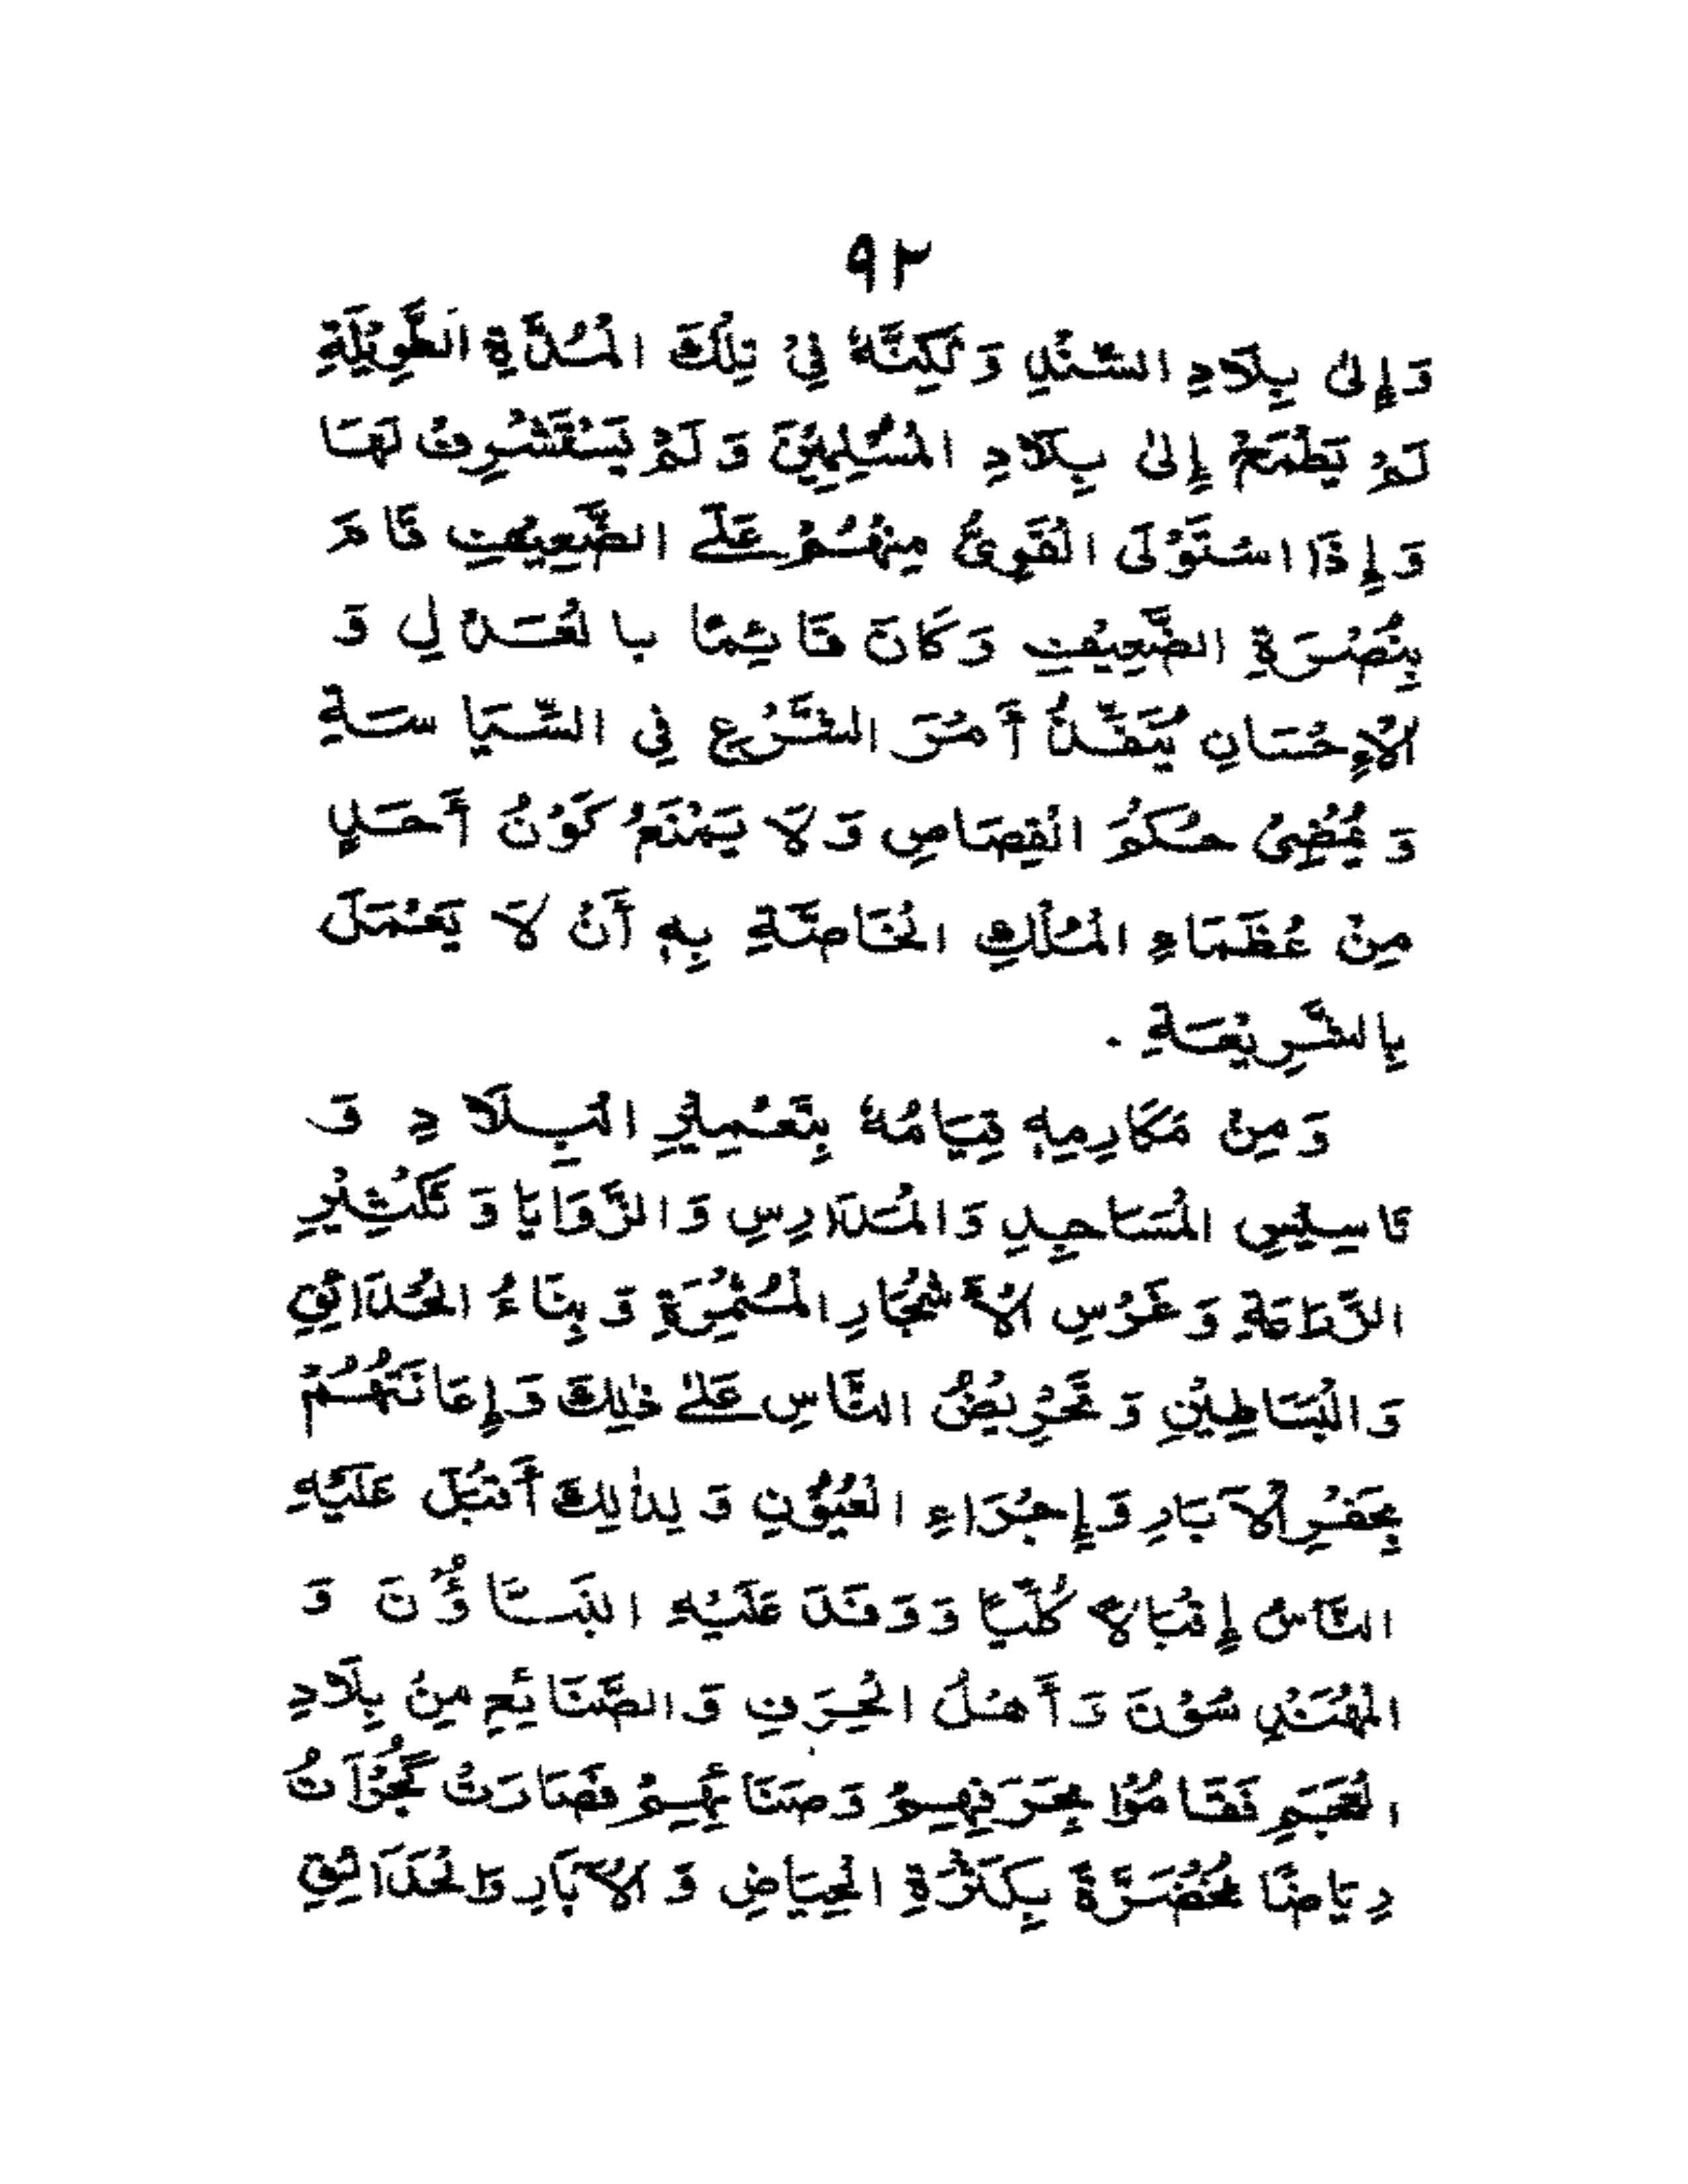 ٩٢
وَإِلىٰ بِلَادِ السِّنْدِ وَلٰكِنَّهٗ فِيْ تِلْكَ الْمُدَّةِ الطَّوِيْلَةِ
لَمْ يَطْمَعْ إِلىٰ بِلَادِ الْمُسْلِمِيْنَ وَلَمْ يَسْتَشْرِفْ لَهَا
وَإِذَا اسْتَوْلَى الْقَوِيُّ مِنْهُمْ عَلَى الضَّعِيفِ قَامَ
بِنُصْرَةِ الضَّعِيْفِ وَكَانَ قَائِمًا بِالْعَدْلِ وَ
الْإِحْسَانِ يُنَفِّذُ أَمْرَ الشَّرْعِ فِي السِّيَاسَةِ
وَيُمْضِيْ حُكْمَ الْقِصَاصِ وَلَا يَمْنَعُ كَوْنُ أَحَدٍ
مِنْ عُظَمَاءِ الْمُلْكِ الْخَاصَّةِ بِهٖ أَنْ لَا يَعْمَلَ
بِالشَّرِيْعَةِ .
وَمِنْ مَكَارِمِهٖ قِيَامُهٗ بِتَعْمِيْرِ الْبِلَادِ وَ
تَاسِيْسِ الْمَسَاجِدِ وَالْمَدَارِسِ وَالزَّوَايَا وَتَكْثِيْرِ
الزِّرَاعَةِ وَغَرْسِ الْأَشْجَارِ الْمُثْمِرَةِ وَبِنَاءُ الْحَدَائِقِ
وَالْبَسَاطِيْنِ وَتَحْرِيْضُ النَّاسِ عَلىٰ ذٰلِكَ وَإِعَانَتُهُمْ
بِحَفْرِ الْآبَارِ وَإِجْرَاءِ الْعُيُوْنِ وَلِذٰلِكَ أَقْبَلَ عَلَيْهِ
النَّاسُ إِقْبَالًا كُلِّيًا وَوَفَدَ عَلَيْهِ الْبَنَّاؤُنَ وَ
الْمُهَنْدِسُوْنَ وَأَهْلُ الْحِرَفِ وَالصَّنَائِعِ مِنْ بِلَادِ
الْعَجَمِ فَقَامُوْا بِحِرَفِهِمْ وَصَنَائِعِهِمْ فَصَارَتْ گُجْرَاتُ
رِيَاضًا مُخْضَرَّةً بِكَثْرَةِ الْحِيَاضِ وَالْآبَارِ وَالْحَدَائِقِ